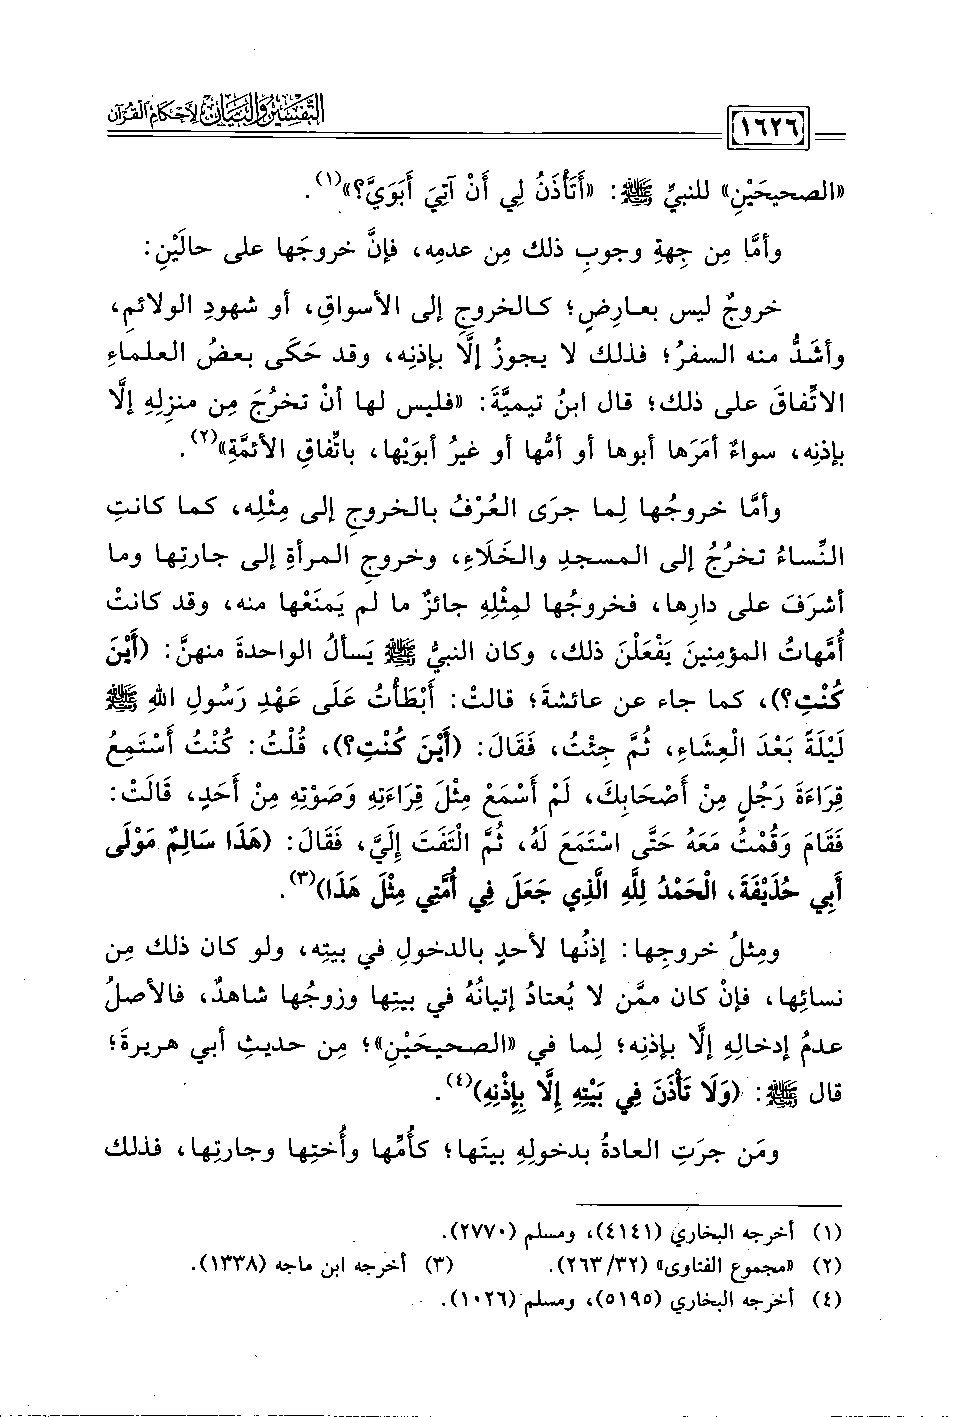 التفسير والبيان لأحكام القرآن
١٦٢٦
«الصحيحَيْنِ» للنبيِّ ﷺ: «أَتَأْذَنُ لِي أَنْ آتِيَ أَبَوَيَّ؟»(١).
وأمَّا مِن جِهةِ وجوبِ ذلك مِن عدمِه، فإنَّ خروجَها على حالَيْنِ:
خروجٌ ليس بعارِضٍ؛ كالخروجِ إلى الأسواقِ، أو شهودِ الولائمِ،
وأشَدُّ منه السفرُ؛ فذلك لا يجوزُ إلَّا بإذنِه، وقد حَكَى بعضُ العلماءِ
الاتِّفاقَ على ذلك؛ قال ابنُ تيميَّةَ: «فليس لها أنْ تخرُجَ مِن منزلِهِ إلَّا
بإذنِه، سواءٌ أمَرَها أبوها أو أمُّها أو غيرُ أبوَيْها، باتِّفاقِ الأئمَّةِ»(٢).
وأمَّا خروجُها لِما جرَى العُرْفُ بالخروجِ إلى مِثْلِه، كما كانتِ
النِّساءُ تخرُجُ إلى المسجدِ والخَلَاءِ، وخروجِ المرأةِ إلى جارتِها وما
أشرَفَ على دارِها، فخروجُها لمِثْلِهِ جائزٌ ما لم يَمنَعْها منه، وقد كانتْ
أُمَّهاتُ المؤمنِينَ يَفْعَلْنَ ذلك، وكان النبيُّ ﷺ يَسألُ الواحدةَ منهنَّ: (أَيْنَ
كُنْتِ؟)، كما جاء عن عائشةَ؛ قالتْ: أَبْطَأْتُ عَلَى عَهْدِ رَسُولِ اللهِ ﷺ
لَيْلَةً بَعْدَ الْعِشَاءِ، ثُمَّ جِئْتُ، فَقَالَ: (أَيْنَ كُنْتِ؟)، قُلْتُ: كُنْتُ أَسْتَمِعُ
قِرَاءَةَ رَجُلٍ مِنْ أَصْحَابِكَ، لَمْ أَسْمَعْ مِثْلَ قِرَاءَتِهِ وَصَوْتِهِ مِنْ أَحَدٍ، قَالَتْ:
فَقَامَ وَقُمْتُ مَعَهُ حَتَّى اسْتَمَعَ لَهُ، ثُمَّ الْتَفَتَ إِلَيَّ، فَقَالَ: (هَذَا سَالِمٌ مَوْلَى
أَبِي حُذَيْفَةَ، الْحَمْدُ لِلَّهِ الَّذِي جَعَلَ فِي أُمَّتِي مِثْلَ هَذَا)(٣).
ومِثلُ خروجِها: إذنُها لأحدٍ بالدخولِ في بيتِه، ولو كان ذلك مِن
نسائِها، فإنْ كان ممَّن لا يُعتادُ إتيانُهُ في بيتِها وزوجُها شاهدٌ، فالأصلُ
عدمُ إدخالِهِ إلَّا بإذنِه؛ لِما في «الصحيحَيْنِ»؛ مِن حديثِ أبي هريرةَ؛
قال ﷺ: (وَلَا تَأْذَنَ فِي بَيْتِهِ إِلَّا بِإِذْنِهِ)(٤).
ومَن جرَتِ العادةُ بدخولِهِ بيتَها؛ كأُمِّها وأُختِها وجارتِها، فذلك
(١) أخرجه البخاري (٤١٤١)، ومسلم (٢٧٧٠).
(٢) «مجموع الفتاوى» (٣٢/ ٢٦٣). (٣) أخرجه ابن ماجه (١٣٣٨).
(٤) أخرجه البخاري (٥١٩٥)، ومسلم (١٠٢٦).